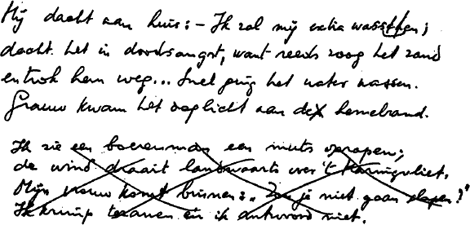 Hij dacht aan huis: – Ik zal mij extra wasschen;
dacht het in doodsangst, want reeds zoog het zand
en trok hem weg... Snel ging het water wassen.
Grauw kwam het daglicht aan de hemelrand.
Ik zie een boerenman een muts oprapen;
de wind draait landwaarts over 't Haringvliet.
Mijn vrouw komt binnen: „Zou je niet gaan slapen?"
Ik krimp tezamen en ik antwoord niet.